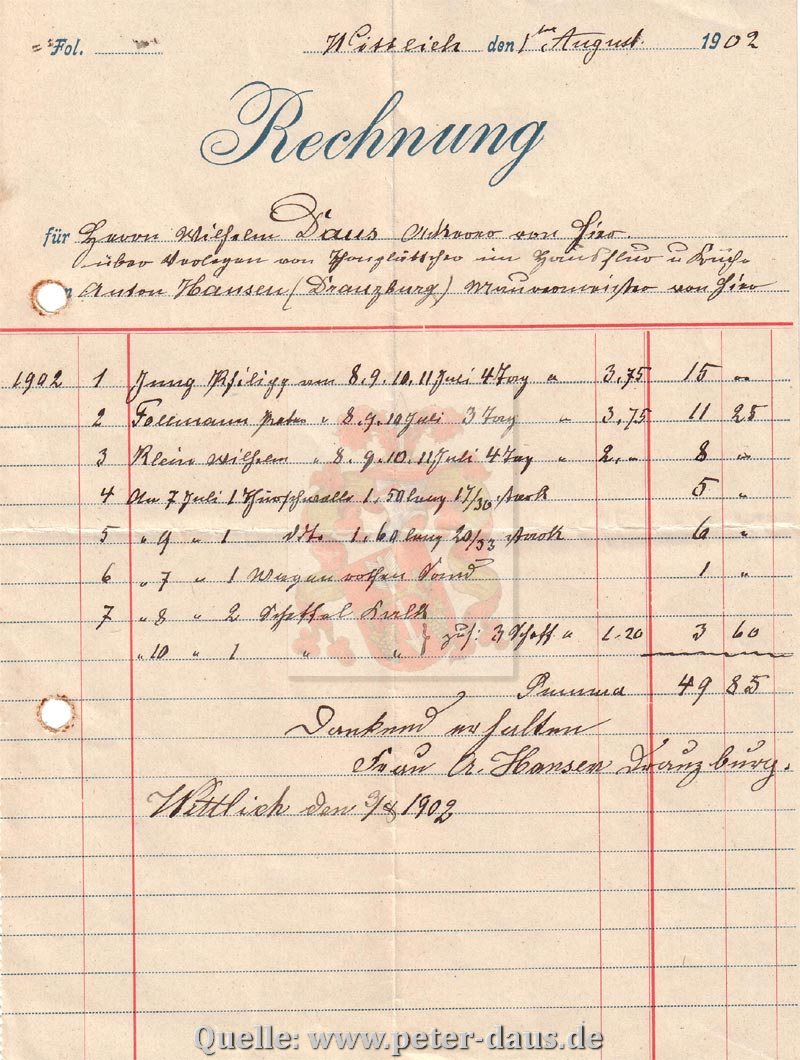 Fol.
Wittlich den 1ten August. 1902
Rechnung
für Herrn Wilhelm Daus Ackerer von hier.
über Verlegen von im Hausflur u Küche
Anton Hansen (Dranzburg) Mauermeister von hier
1902 1 Jung Philipp vom 8. 9. 10. 11 Juli 4 Tag a 3,75 15 „
2 Follmann Peter „ 8. 9. 10 Juli 3 Tag „ 3,75 11 25
3 Klein Wilhelm „ 8. 9. 10. 11 Juli 4 Tag „ 2,„ 8 „
4 Am 7 Juli 1 Thürschwelle 1.50 lang 17/30 stark 5 „
5 „ 9 „ 1 dto 1.60 lang 20/33 stark 6 „
6 „ 7 „ 1 Wagen rothen Sand 1 „
7 „ 8 „ 2 Scheffel Kalk
„ 10 „ 1 „ „ } zus: 3 Scheff a 1.20 3 60
Summa 49 85
Dankend erhalten
Frau A. Hansen Dranzburg.
Wittlich den 3/8 1902
Quelle: www.peter-daus.de